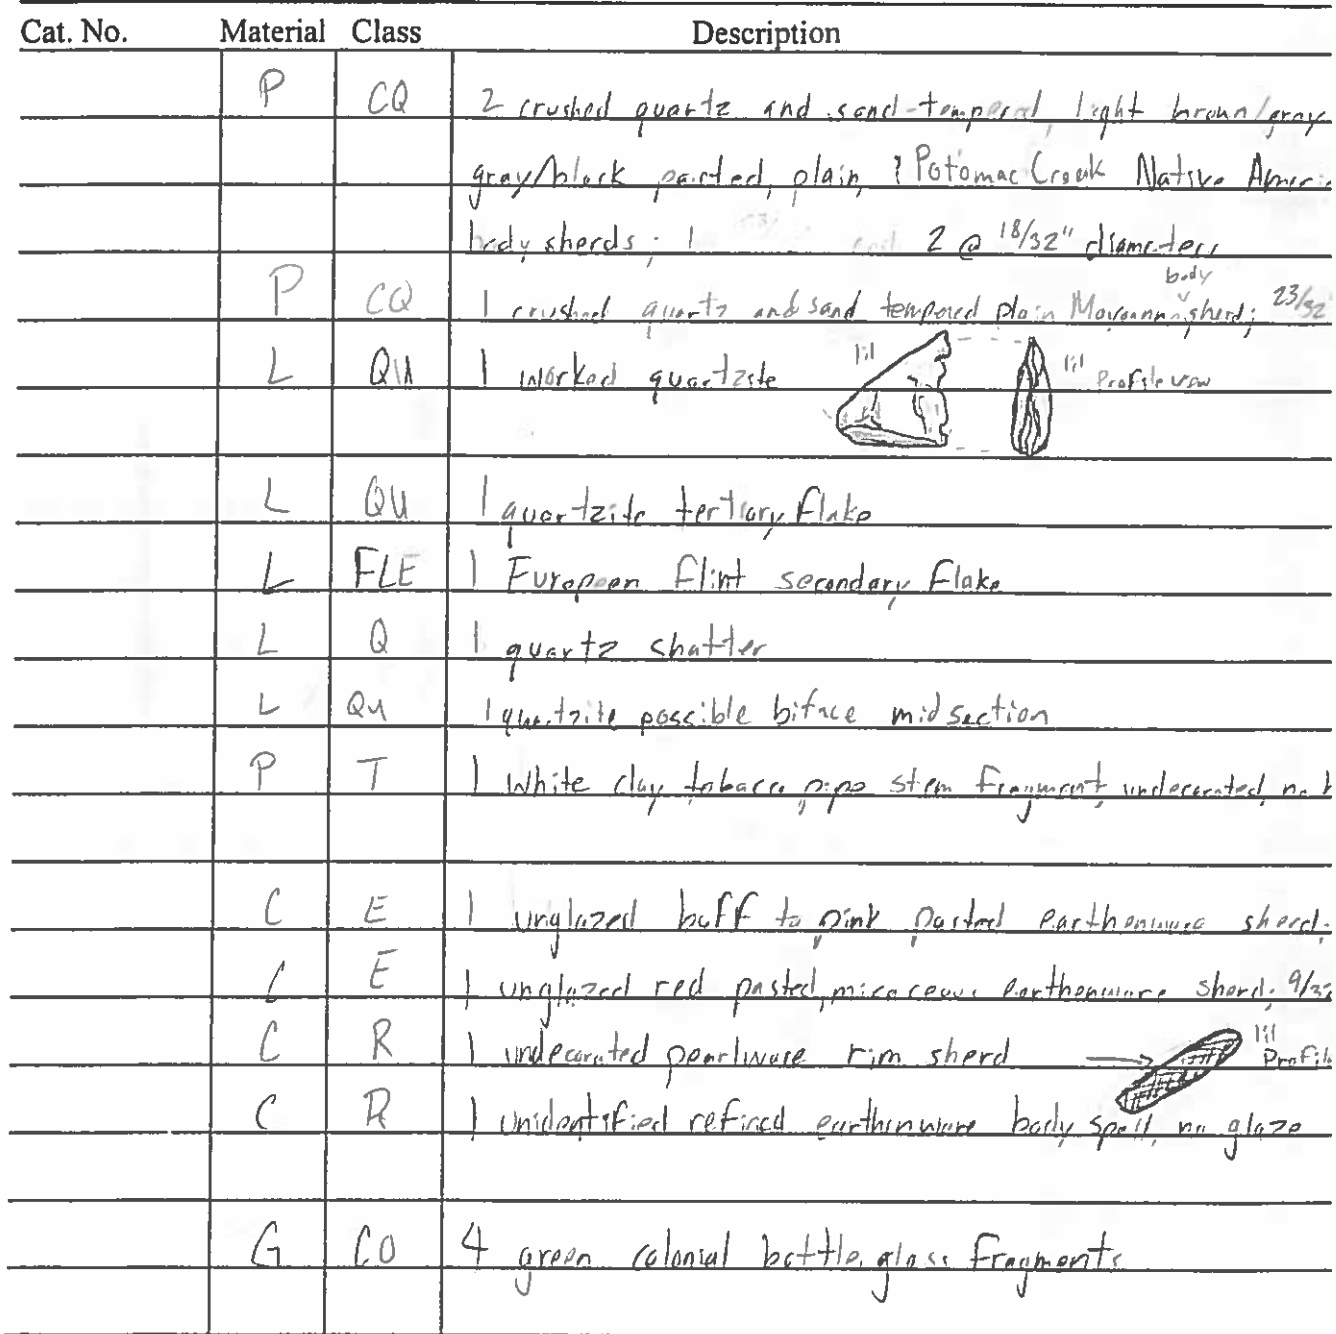 Cat. No. Material Class Description
P CQ 2 crushed quartz and sand-tempered, light brown/gray
gray/black pasted, plain, ? Potomac Creek Native Ameri
body sherds; 1 2 @ 18/32" diameters
body
P CQ 1 crushed quartz and sand tempered plain sherd; 23/32
L QU 1 worked quartzite 1:1 1:1 Profile view
L QU 1 quartzite tertiary flake
L FLE 1 European flint secondary flake
L Q 1 quartz shatter
L QU 1 quartzite possible biface midsection
P T 1 White clay tobacco pipe stem fragment, undecorated, no
C E 1 unglazed buff to pink pasted earthenware sherd;
C E 1 unglazed red pasted, micaceous earthenware sherd; 9/32
C R 1 undecorated pearlware rim sherd 1:1
Profile
C R 1 unidentified refined earthenware body spall, no glaze
G CO 4 green colonial bottle glass fragments